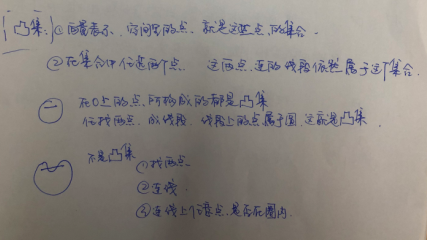 凸集: ①向量表示, 空间里的点, 就是这些点的集合.
②在集合中任意两个点 这两点连的线段依然属于这个集合.
在O上的点, 所构成的都是凸集
任找两点, 成线段, 线段上的点属于圆, 这就是凸集.
不是凸集
①找两点
②连线.
③连线上任意点, 是否在圈内.